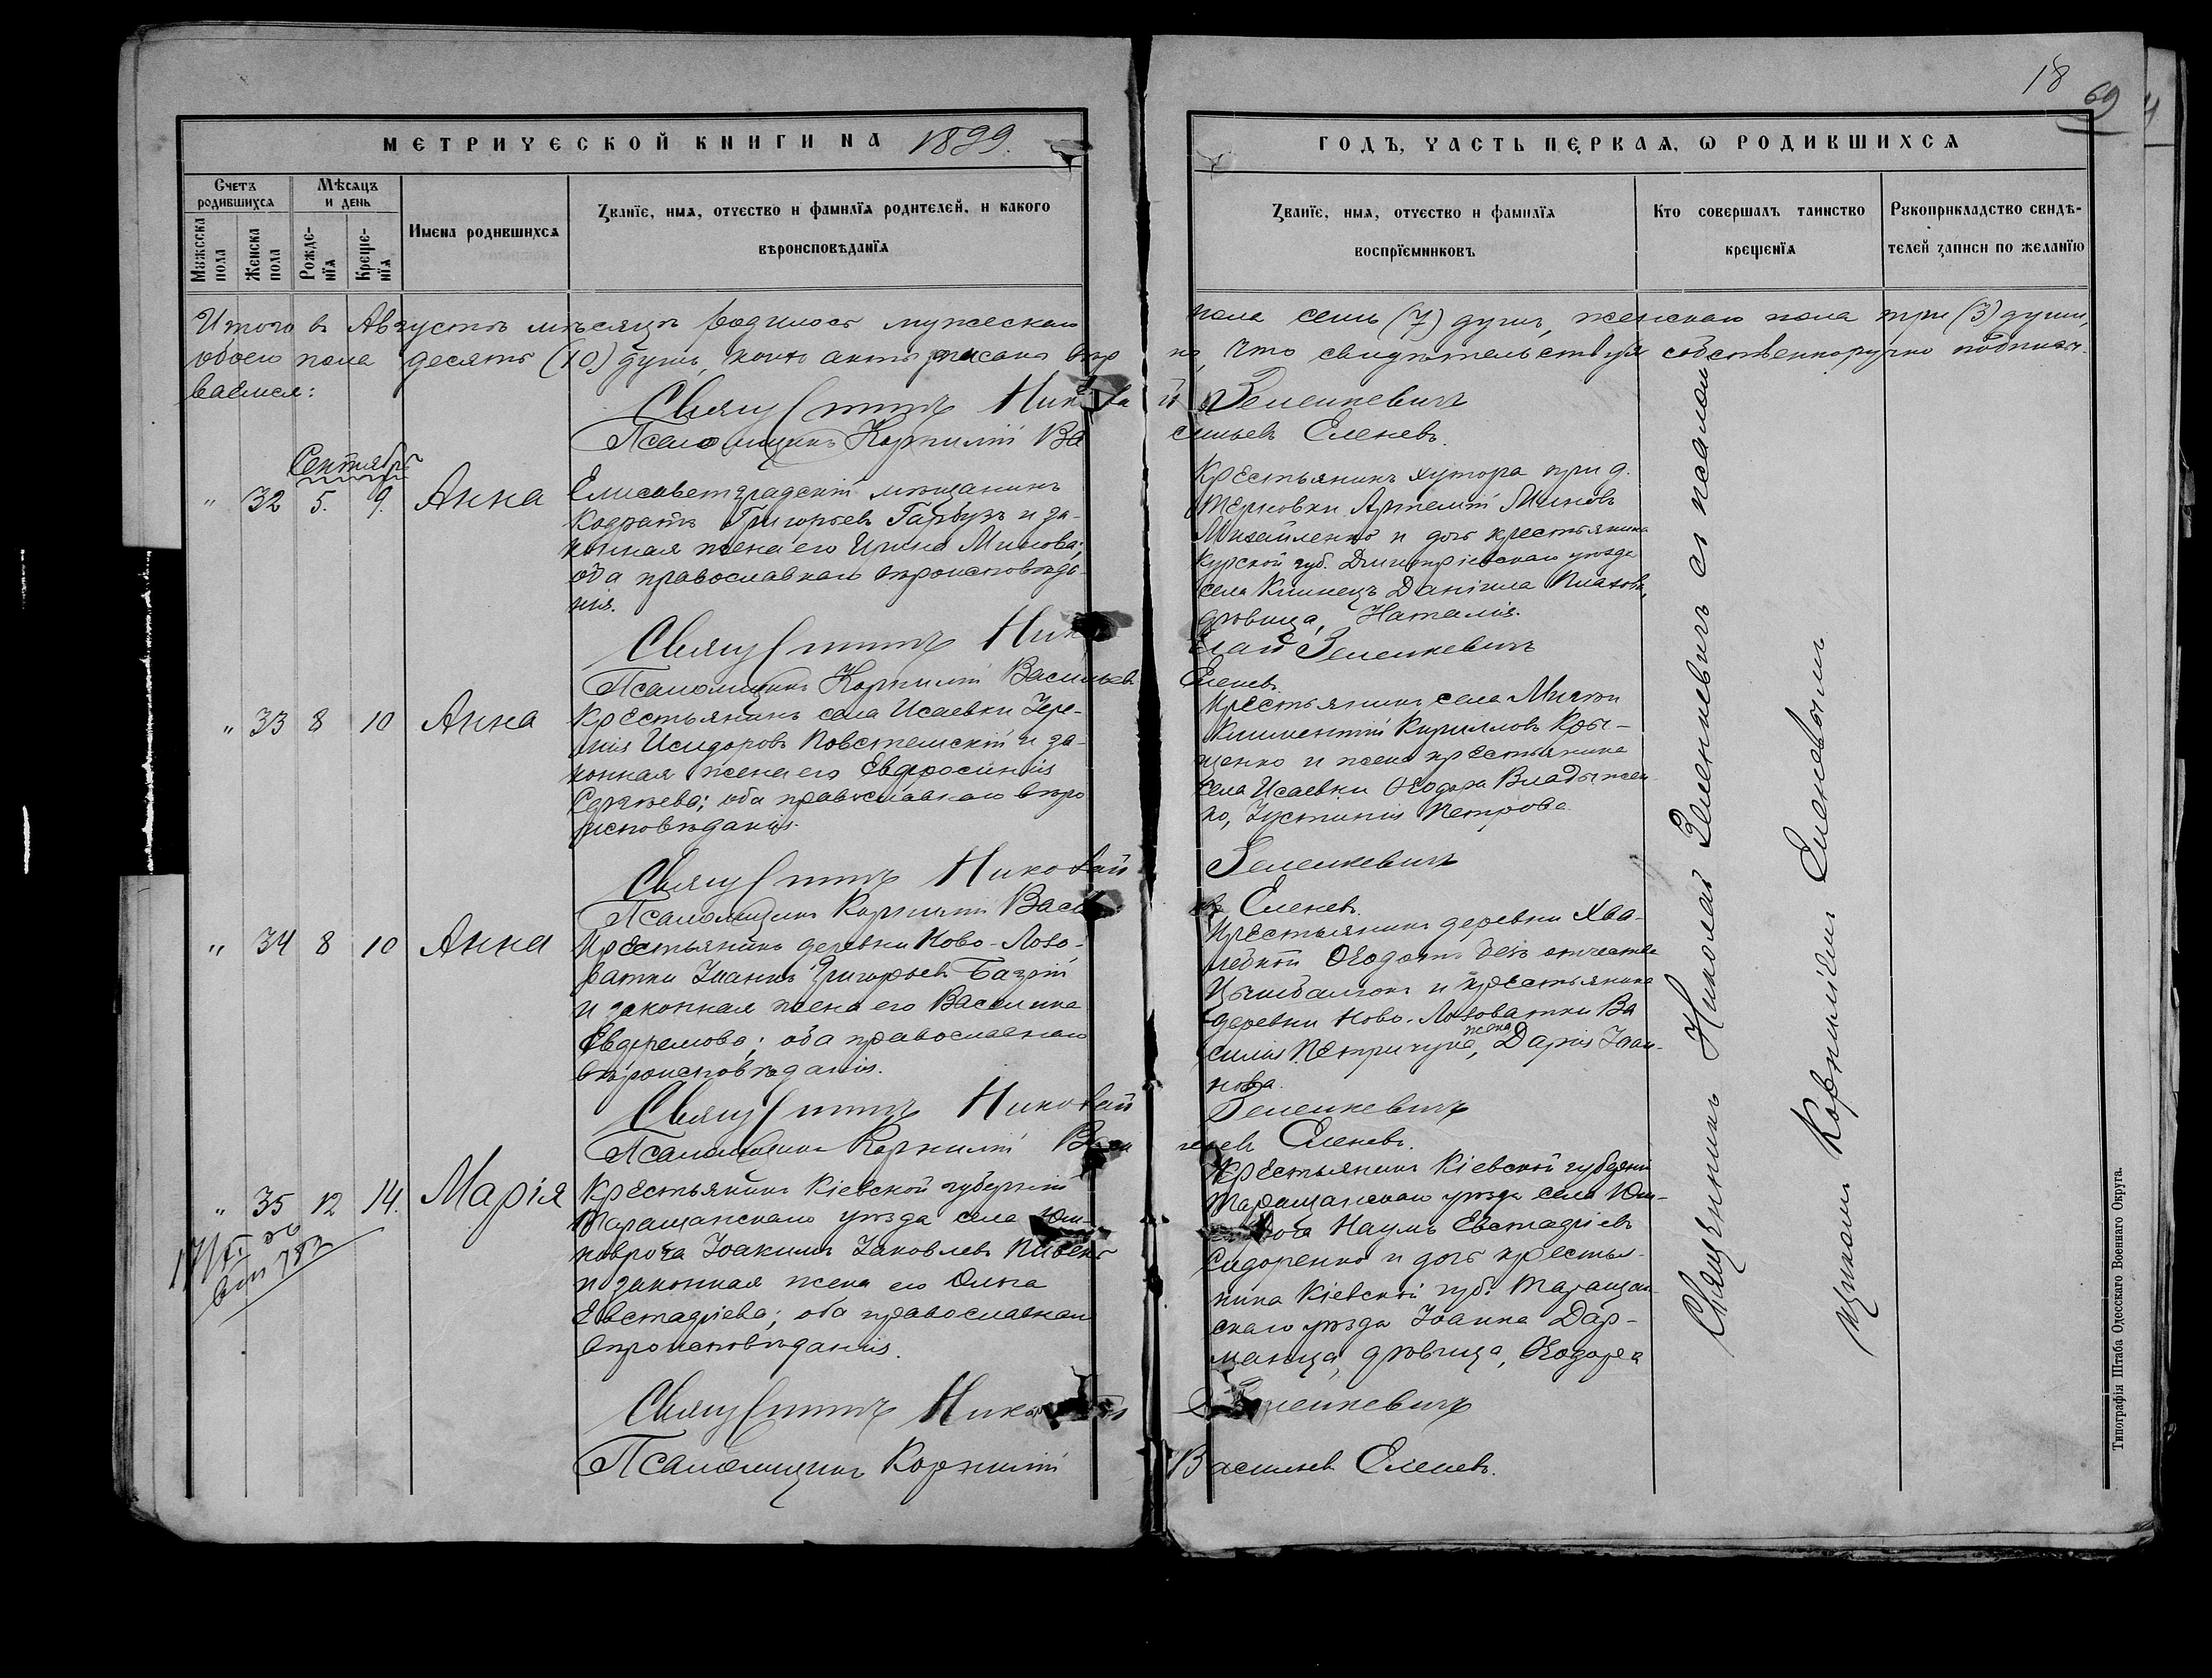 18
69
МЕТРИЧЕСКОЙ КНИГИ НА 1899.
ГОДЪ, ЧАСТЬ ПЕРВАЯ, Ѡ РОДИВШИХСЯ
Счетъ родившихся
Мужеска пола
Женска пола
Мѣсяцъ и день
Рожденїя
Крещенїя
Имена родившихся
Званїе, имя, отчество и фамилїя родителей, и какого
вѣроисповѣданїя
Званїе, имя, отчество и фамилїя
воспрїемниковъ
Кто совершалъ таинство
крещенїя
Рукоприкладство свидѣ-
телей записи по желанїю
Итого въ Августѣ мѣсяцѣ родилось мужескаго пола семь (7) душъ, женскаго пола три (3) души,
обоего пола десять (10) душъ, что свидѣтельствуя собственноручно подписы-
ваемся:
Священникъ Николай Зеленкевичъ
Псаломщикъ Корнилій Васильевъ Еленевъ.
Сентябрь
" 32 5. 9. Анна
Елисаветградскій мѣщанинъ
Кодратъ Григорьевъ Гарбузъ и за-
конная жена его Ирина Минова;
оба православнаго вѣроисповѣда-
нія.
Крестьянинъ хутора при д.
Терновки Артемій Миновъ
и дочь крестьянина
Курской губ. Дмитріевскаго уѣзда
села Даніила
дѣвица, Наталія.
Священникъ Николай Зеленкевичъ
Псаломщикъ Корнилій Васильевъ Еленевъ.
" 33 8 10 Анна
Крестьянинъ села Исаевки Іере-
мія Исидоровъ Повстемскій и за-
конная жена его Евфросинія
Сергѣева; оба православнаго вѣро
исповѣданія.
Крестьянинъ села
Климентій Кирилловъ Кры-
щенко и жена крестьянина
села Исаевки Ѳеодора Владыжен
ко, Іустинія Петрова
Священникъ Николай Зеленкевичъ
Псаломщикъ Корнилій Васильевъ Еленевъ.
" 34 8 10 Анна
Крестьянинъ деревни Ново-Лозо-
ватки Іоаннъ Григорьевъ Багрій
и законная жена его Василина
Евфремова; оба православнаго
вѣроисповѣданія.
Крестьянинъ деревни Хва-
Ѳеодотъ безъ отчества
Цымбалюкъ и крестьянина
деревни Ново-Лозоватки Ва
силія Петричука, жена Дарія Іоан-
нова.
Священникъ Николай Зеленкевичъ
Псаломщикъ Корнилій Васильевъ Еленевъ.
" 35 12 14. Марія
Крестьянинъ Кіевской губерніи
Таращанскаго уѣзда села Юш-
коврога Іоакимъ Іаковлевъ Пивень
и законная жена его Ольга
Евстафіева; оба православнаго
вѣроисповѣданія.
Крестьянинъ Кіевской губерніи
Таращанскаго уѣзда села Юш-
Наумъ Евстафіевъ
Сидоренко и дочь крестья-
нина Кіевской губ. Таращан-
скаго уѣзда Іоанна Дар-
манца, дѣвица, Ѳеодора
Священникъ Николай Зеленкевичъ
Псаломщикъ Корнилій Васильевъ Еленевъ.
Священникъ Николай Зеленкевичъ съ псалом
щикомъ Корниліемъ Еленевымъ
Типографія Штаба Одесскаго Военнаго Округа.